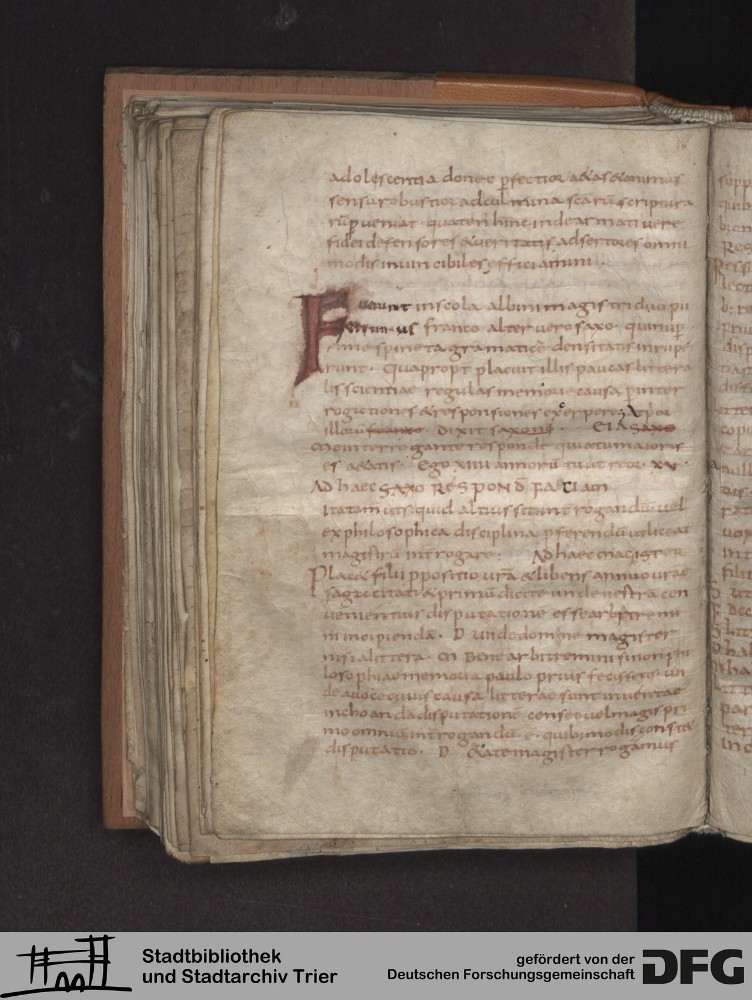 adolescentia donec pfectior aetas & animus
sensu robustior ad culmina scarū scriptura
rūp veniat · quaten hinc inde armati vere
fidei defensores & veritatis adsertores omni
modis invincibiles efficiamini
Fuerunt in scola albini magistri duo pu
eri unus franco alter vero saxo · qui nup
rime spineta gramatice densitatis inrupe
runt · Quapropt placuit illis paucas littera
lis scientiae regulas memorie causa p inter
rogationes & responsiones excerpere · At por
illorū franco · dixit saxoni · EIA saxo
me interrogante responde quia tu maioris
es aetatis · Ego xiiii annorū tu ut reor · xv ·
Ad haec SAXO RESPOND FACIAM
ita tamen ut siquid altius sit interrogandū vel
ex philosophica disciplina pferendū ut liceat
magistrū introgare · Ad haec MAGISTER
Placet filii ppositio vrā & libens annuo vrae
sagacitati & primū dicite unde vestra con
venientius disputatione esse arbitremi
ni incipiendā · D unde domine magister
nisi a littera · M Bene arbitremini si non phi
losophiae memoria paulo prius fecissetis un
de a voce cuius causa litterae sunt inventae
inchoanda disputationē censeo vel magis pri
mo omniū introgandū · ē · quibus modis constet
disputatio · D & a te magister rogamus
Stadtbibliothek
und Stadtarchiv Trier
gefördert von der
Deutschen Forschungsgemeinschaft
DFG